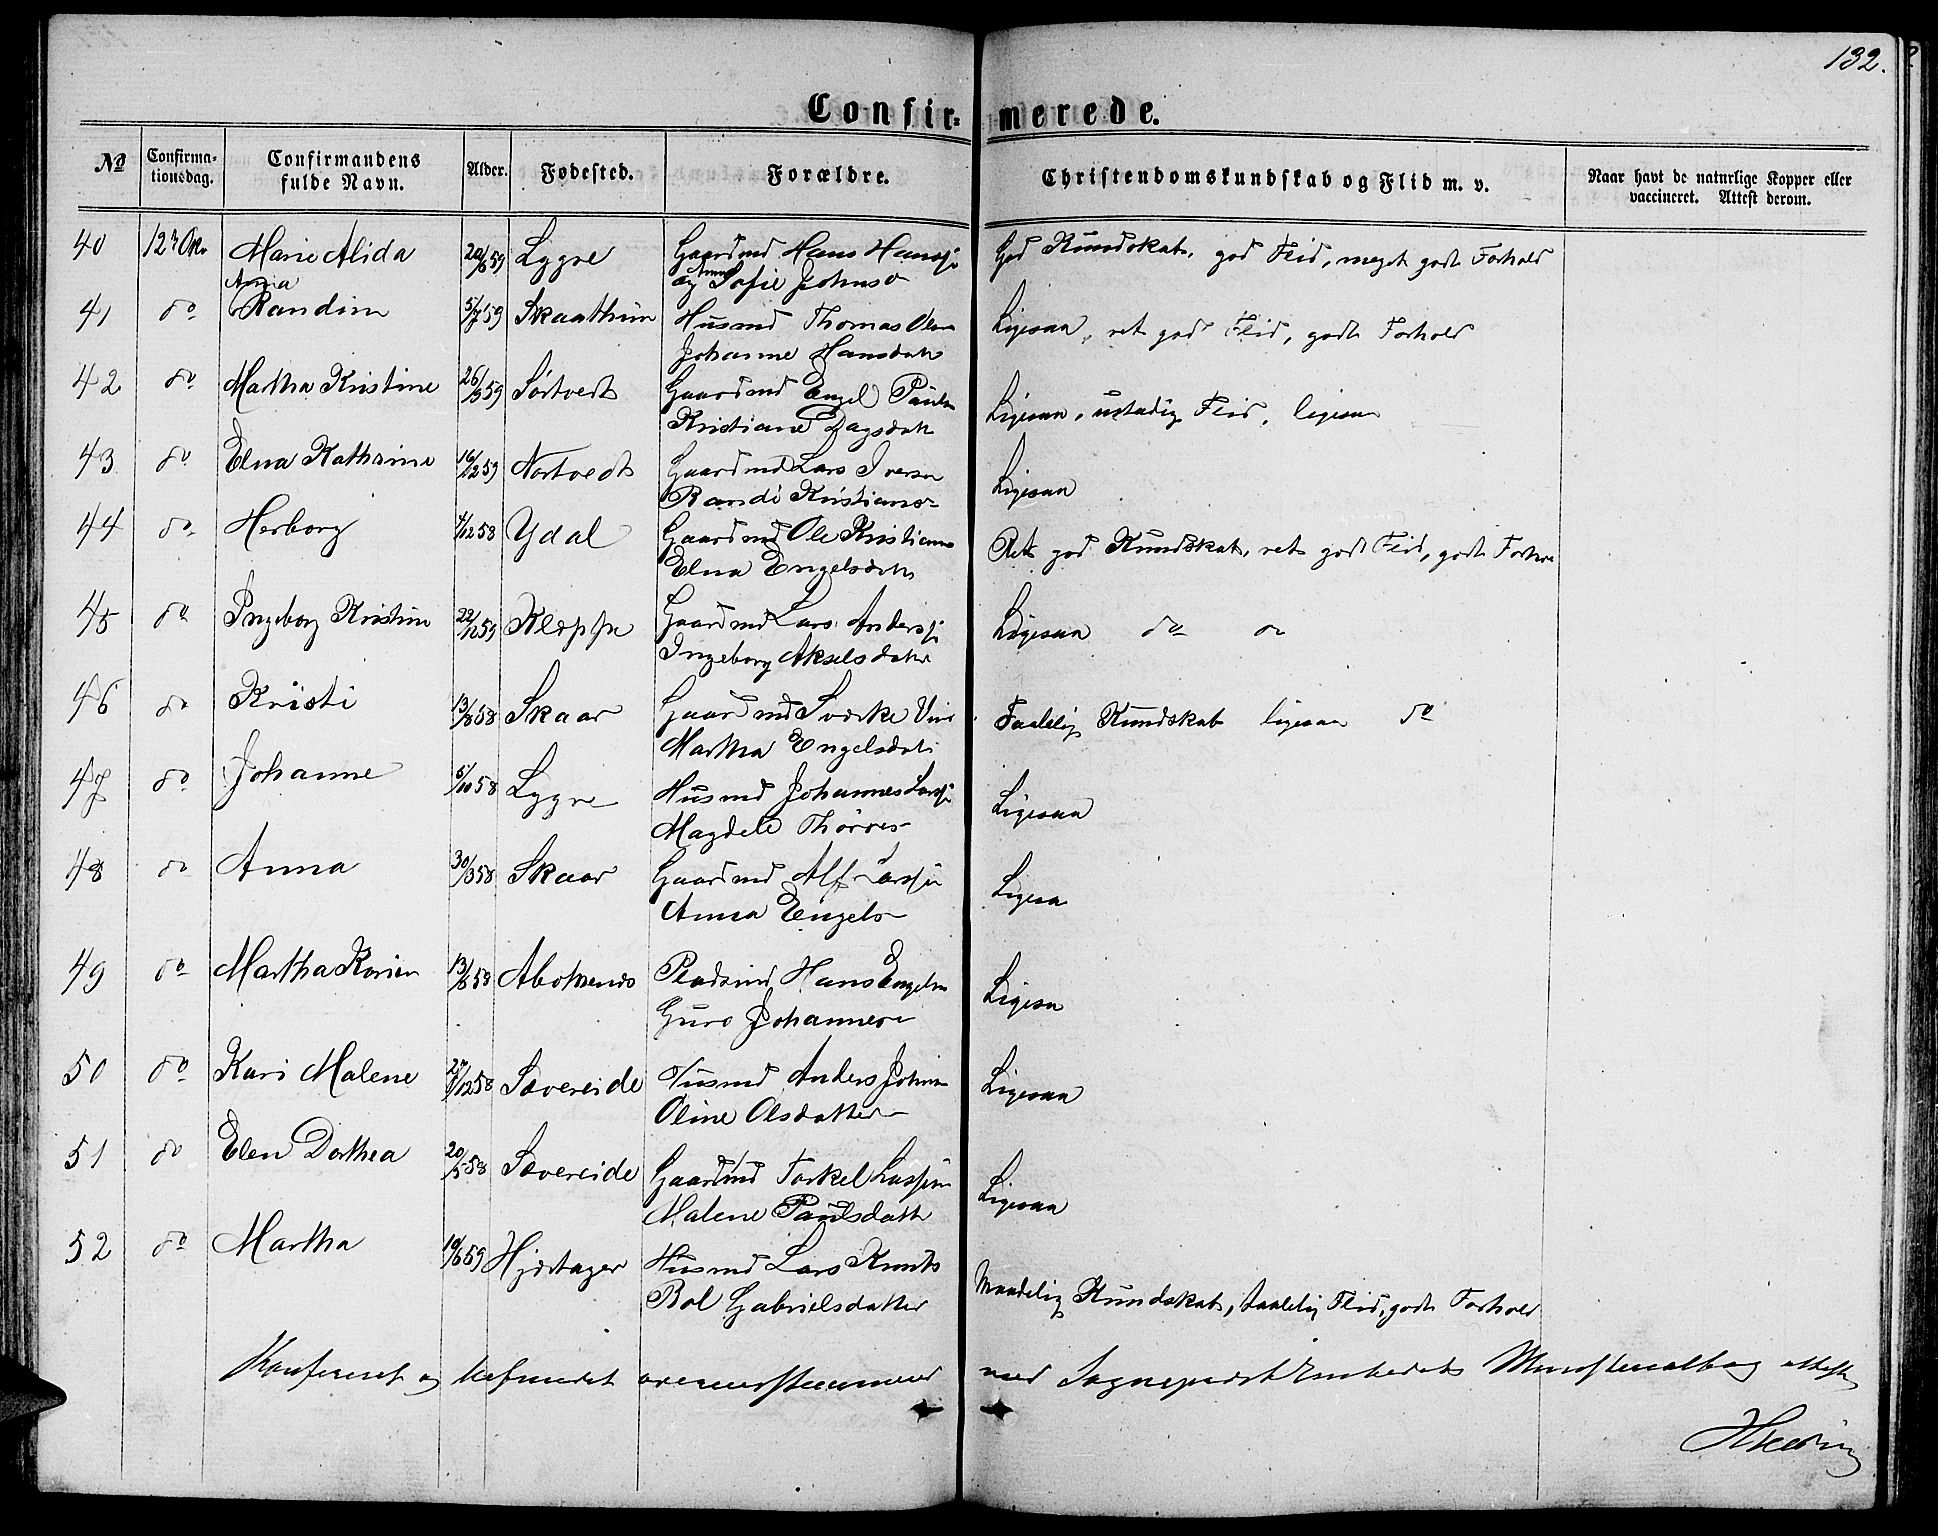 132.
Confir- merede.
No Confirmationsdag. Confirmandens fulde Navn. Alder. Fødested. Forældre. Christendomskundskab og Flid m. v. Naar havt de naturlige Kopper eller vaccineret. Attest derom.
40 12 Marie Alida 59 Lygre Gaardmd Hans God Kundskab, god Flid, meget godt Forhold
og Anne Sofie Johns
Anna
41 do Randine 5/7 59 Husmd Thomas Ligesaa, ret god Flid, godt Forhold
Johanne Hansdatt
42 do Martha Kristine 59 Sørtvedt Gaardmd Engel Ligesaa, ustadig Flid, ligesaa
Kristiane Dagsdatt
43 do Elna Kathrine 16/12 59 Nortvedt Gaardmd Lars Iversen Ligesaa
Randi
44 do Herborg 4/12 58 Ydal Gaardmd Ole Ret god Kundskab, ret god Flid, godt
Elna Engelsdatt
45 do Ingeborg Kristine 22/12 59 Kleppe Gaardmd Lars Ligesaa do do
Ingeborg Akselsdatter
46 do Kristi 13/8 58 Skaar Gaardmd Taalelig Kundskab ligesaa do
Martha Engelsdatt
47 do Johanne 5/10 58 Lygre Husmd Johannes Ligesaa
Magdele
48 do Anna 30/3 58 Skaar Gaardmd Alf Ligesaa
Anna Engels
49 do Martha 58 Hans Ligesaa
Guro
50 do Kari Malene 58 Sævereide Husmd Anders Ligesaa
Oline Olsdatter
51 do Elen Dorthea 20/5 58 Sævereide Gaardmd Torkel Ligesaa
Malene Paulsdatt
52 do Martha 59 Hjortager Husmd Lars Knuts Maadelig Kundskab, taalelig Flid, godt Forhold
Bol Gabrielsdatter
og befundet overensstemmende med Ministerialbog